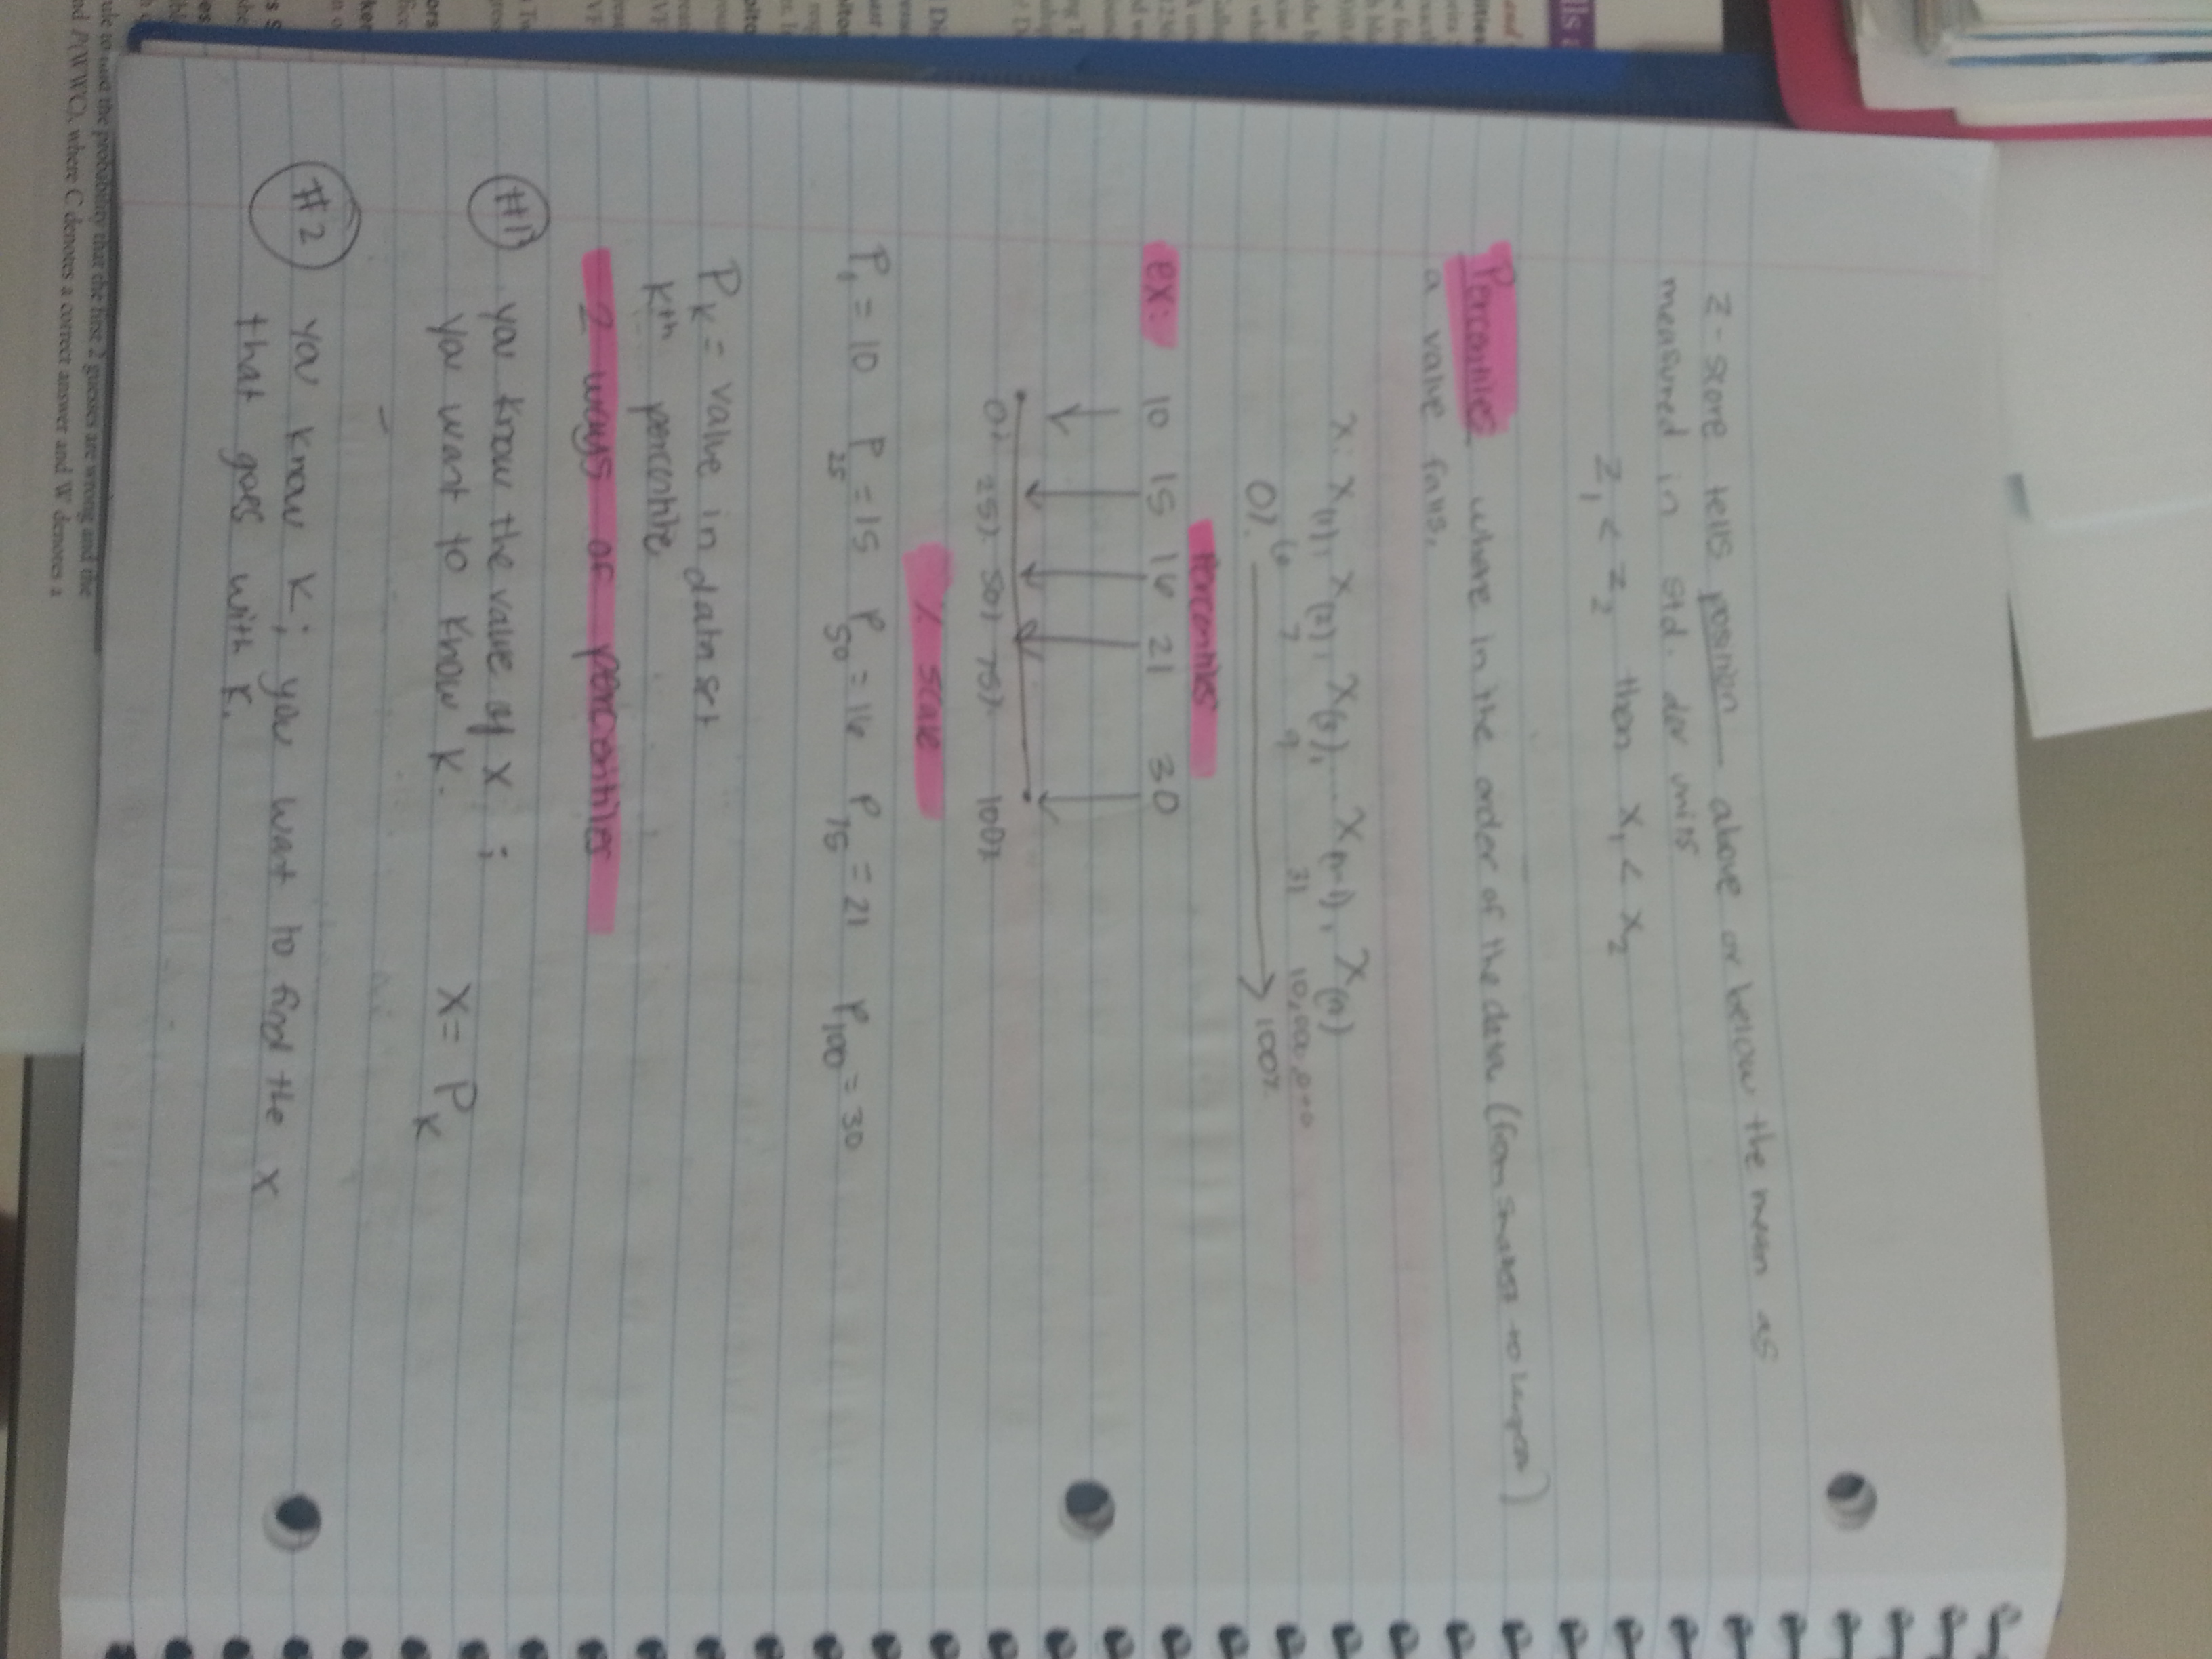 z-score tells position - above or below the mean as
measured in std. dev units
z₁ < z₂ then x₁ < x₂
Percentiles where in the order of the data (from smallest to largest)
a value falls.
x: x(1), x(2), x(3), ... x(n-1), x(n)
6 7 9 31 10,000,000
0% 100%
percentiles
ex: 10 15 16 21 30
0% 25% 50% 75% 100%
% scale
P₁ = 10 P₂₅ = 15 P₅₀ = 16 P₇₅ = 21 P₁₀₀ = 30
Pₖ = value in data set
Kth percentile
2 ways of percentiles
#1 you know the value of x ;
you want to know K. x = Pₖ
#2 you know K ; you want to find the x
that goes with K.
rule to find the probability that the first 2 guesses are wrong and the
P(WWC), where C denotes a correct answer and W denotes a